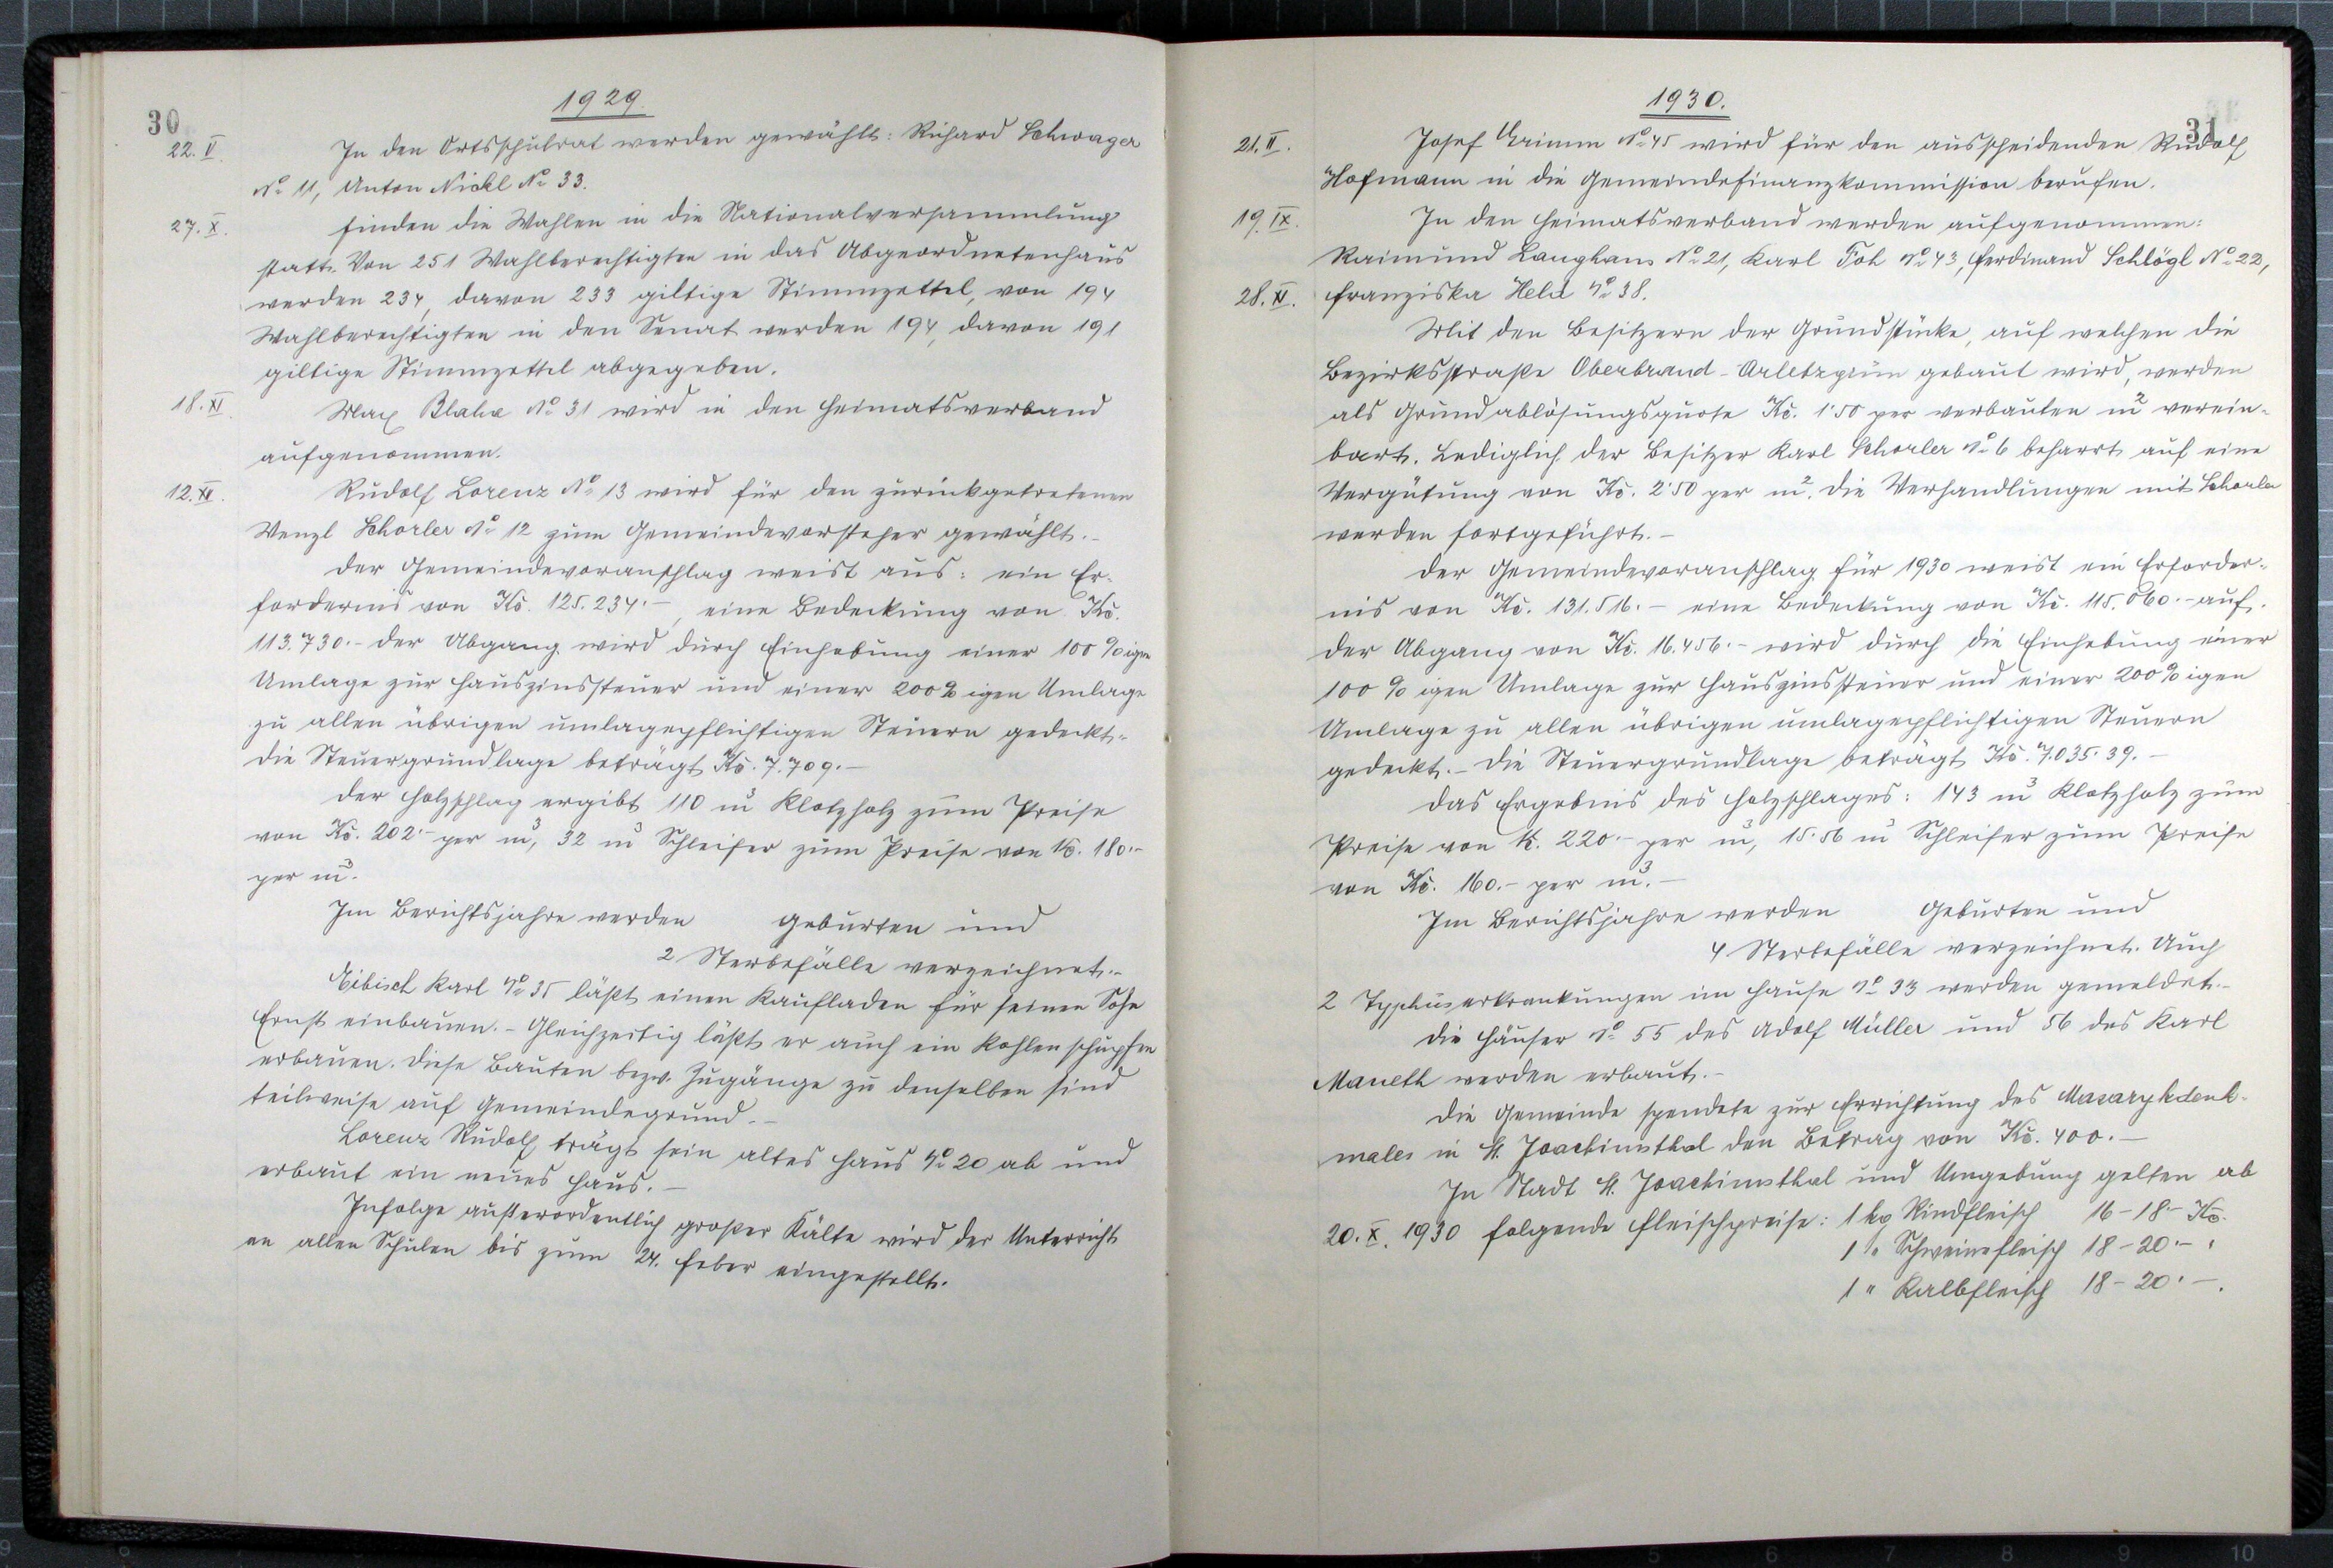 30
1929.
22. V. In den Ortsschulrat werden gewählt: Richard Schwager
No 11, Anton Nickl No 33.
27. X. finden die Wahlen in die Nationalversammlung
statt. Von 251 Wahlberechtigten in das Abgeordnetenhaus
werden 234, davon 233 giltige Stimmzettel, von 194
Wahlberechtigten in den Senat werden 194, davon 191
giltige Stimmzettel abgegeben.
18. XI. Max Blaha No 31 wird in den Heimatsverband
aufgenommen.
12. XII. Rudolf Lorenz No 13 wird für den zurückgetretenen
Wenzl Schorler No 12 zum Gemeindevorsteher gewählt.-
Der Gemeindevoranschlag weist aus: ein Er-
fordernis von Kč. 125.234.-, eine Bedeckung von Kč.
113.730.- Der Abgang wird durch Einhebung einer 100%igen
Umlage zur Hauszinssteuer und einer 200%igen Umlage
zu allen übrigen umlagepflichtigen Steuern gedeckt.-
Die Steuergrundlage beträgt Kč. 7.709.-
Der Holzschlag ergibt 110 m3 Klotzholz zum Preise
von Kč. 202.- per m3, 32 m3 Schleifer zum Preise von Kč. 180.-
per m3.
Im Berichtsjahre werden Geburten und
2 Sterbefälle verzeichnet.-
Eibisch Karl No 35 läßt einen Kaufladen für seinen Sohn
Ernst einbauen.- Gleichzeitig läßt er auch ein Kohlenschupfen
erbauen. Diese Bauten bezw. Zugänge zu denselben sind
teilweise auf Gemeindegrund.-
Lorenz Rudolf trägt sein altes Haus No 20 ab und
erbaut ein neues Haus.-
Infolge außerordentlich großer Kälte wird der Unterricht
an allen Schulen bis zum 24. Feber eingestellt.
31
1930.
21. II. Josef Grimm No 45 wird für den ausscheidenden Rudolf
Hofmann in die Gemeindefinanzkommission berufen.
19. IX. In den Heimatsverband werden aufgenommen:
Raimund Langhans No 21, Karl Toh No 43, Ferdinand Schlögl No 22,
28. XI. Franziska Held No 38.
Mit den Besitzern der Grundstücke, auf welchen die
Bezirksstraße Oberbrand-Arletzgrün gebaut wird, werden
als Grundablösungsquote Kč. 1·50 per verbauten m2 verein-
bart. Lediglich der Besitzer Karl Schorler No 6 beharrt auf eine
Vergütung von Kč. 2·50 per m2. Die Verhandlungen mit Schorler
werden fortgeführt.-
Der Gemeindevoranschlag für 1930 weist ein Erforder-
nis von Kč. 131.516.- eine Bedeckung von Kč. 115.060.- auf.
Der Abgang von Kč. 16.456.- wird durch die Einhebung einer
100%igen Umlage zur Hauszinssteuer und einer 200%igen
Umlage zu allen übrigen umlagepflichtigen Steuern
gedeckt.- Die Steuergrundlage beträgt Kč. 7.035.39.-
Das Ergebnis des Holzschlages: 143 m3 Klotzholz zum
Preise von K. 220.- per m3, 15·56 m3 Schleifer zum Preise
von Kč. 160.- per m3.-
Im Berichtsjahre werden Geburten und
4 Sterbefälle verzeichnet. Auch
2 Typhuserkrankungen im Hause No 33 werden gemeldet.-
Die Häuser No 55 des Adolf Müller und 56 des Karl
Maneth werden erbaut.-
Die Gemeinde spendete zur Errichtung des Masarykdenk-
males in St. Joachimsthal den Betrag von Kč. 400.-
In Stadt St. Joachimsthal und Umgebung gelten ab
20. X. 1930 folgende Fleischpreise: 1 kg Rindfleisch 16-18.- Kč.
1 " Schweinefleisch 18-20.- "
1 " Kalbfleisch 18-20.-.